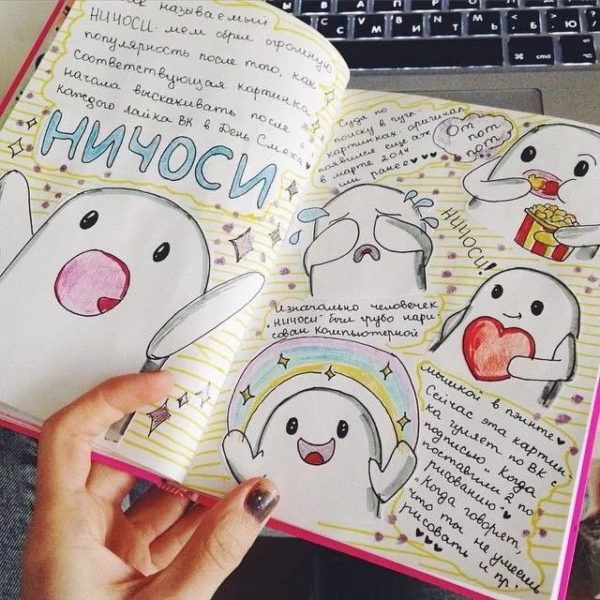 так называемый
НИЧОСИ мем обрел огромную
популярность после того, как
соответствующая картинка
начала выскакивать после
каждого лайка ВК в День Смеха
НИЧОСИ
Судя по
поиску в гугл
картинках, оригинал
появился еще аж
в марте 2014
или ранее
Om
nom
nom
НИЧОСИ!
Изначально человечек
"Ничоси" был грубо нари
сован компьютерной
мышкой в пэинте
Сейчас эта картин
ка гуляет по ВК с
подписью "Когда
поставили 2 по
рисованию"
"Когда говорят,
что ты не умеешь
рисовать и пр.